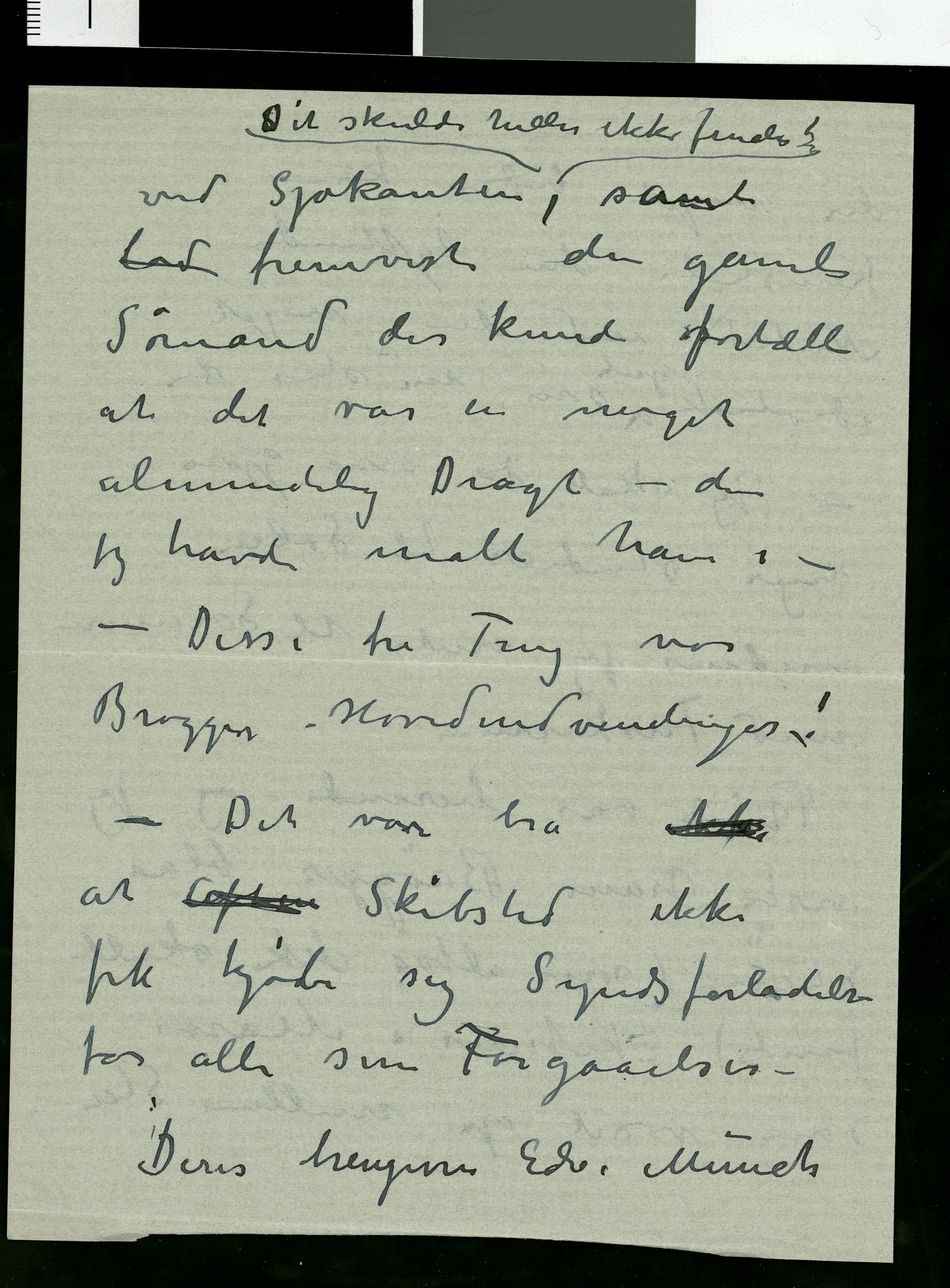 Det skulde heller ikke findes!
ved Sjøkanten, samt
lod fremviste den gamle
Sömand der kunde fortælle
at det var en meget
almindelig Dragt – den
jeg havde malt ham i –
– Disse tre Ting var
Brøggers Hovedindvendinger!
– Det var bra
at Skibsted ikke
fik kjøbe sig Syndsforladelse
for alle sine Forgaaelser –
Deres hengivne Edv. Munch